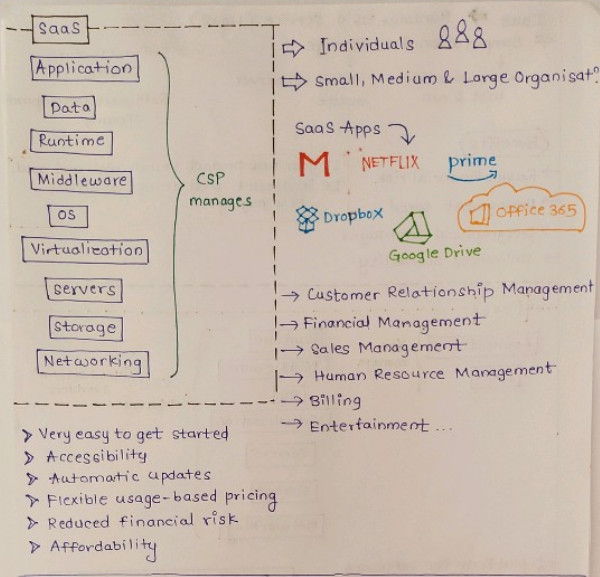 SaaS
Application
Data
Runtime
Middleware
OS
Virtualization
Servers
Storage
Networking
CSP
manages
Very easy to get started
Accessibility
Automatic updates
Flexible usage-based pricing
Reduced financial risk
Affordability
Individuals
Small, Medium & Large Organisatⁿ.
SaaS Apps
M
NETFLIX
prime
Dropbox
Google Drive
Office 365
Customer Relationship Management
Financial Management
Sales Management
Human Resource Management
Billing
Entertainment ...